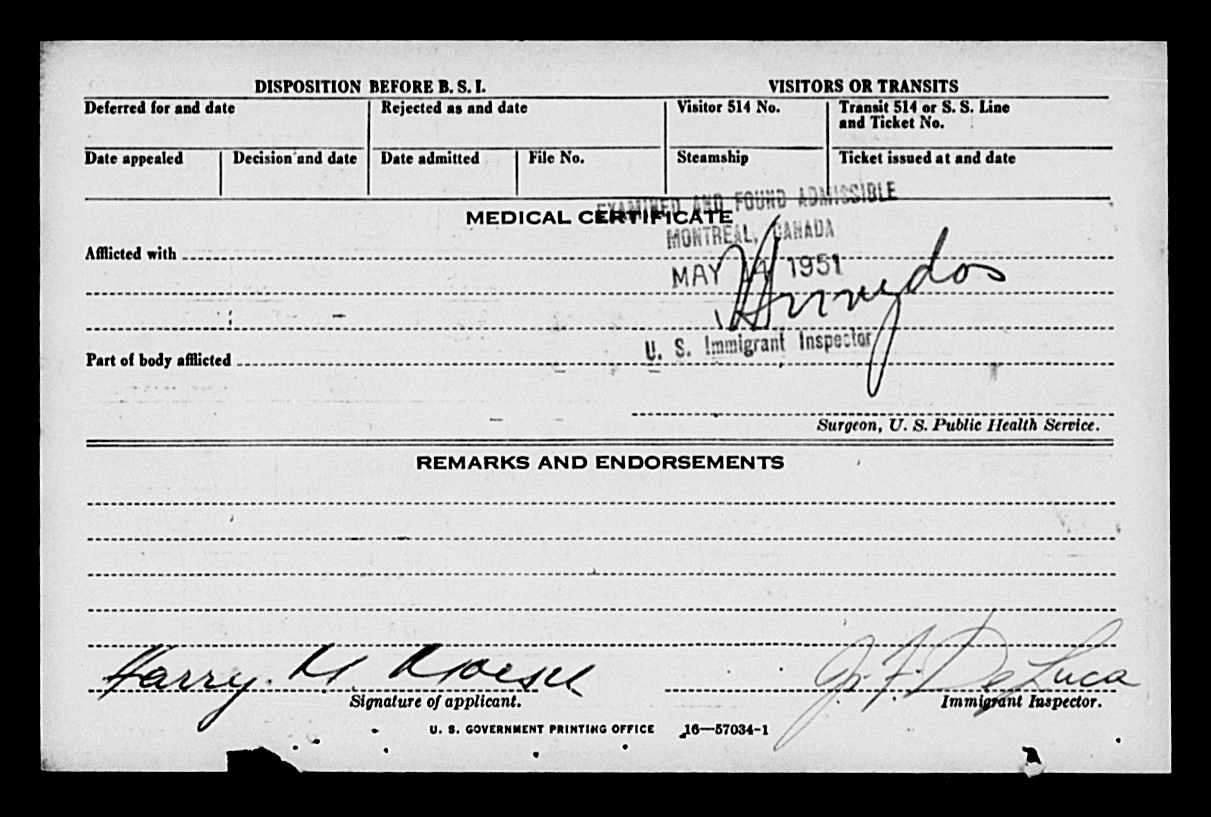 DISPOSITION BEFORE B. S. I. VISITORS OR TRANSITS
Deferred for and date Rejected as and date Visitor 514 No. Transit 514 or S. S. Line
and Ticket No.
Date appealed Decision and date Date admitted File No. Steamship Ticket issued at and date
EXAMINED AND FOUND ADMISSIBLE
MEDICAL CERTIFICATE
MONTREAL, CANADA
Afflicted with
MAY 14 1951
U. S. Immigrant Inspector
Part of body afflicted
Surgeon, U. S. Public Health Service.
REMARKS AND ENDORSEMENTS
Harry. M. J. F. De Luca
Signature of applicant. Immigrant Inspector.
U. S. GOVERNMENT PRINTING OFFICE 16—57034-1